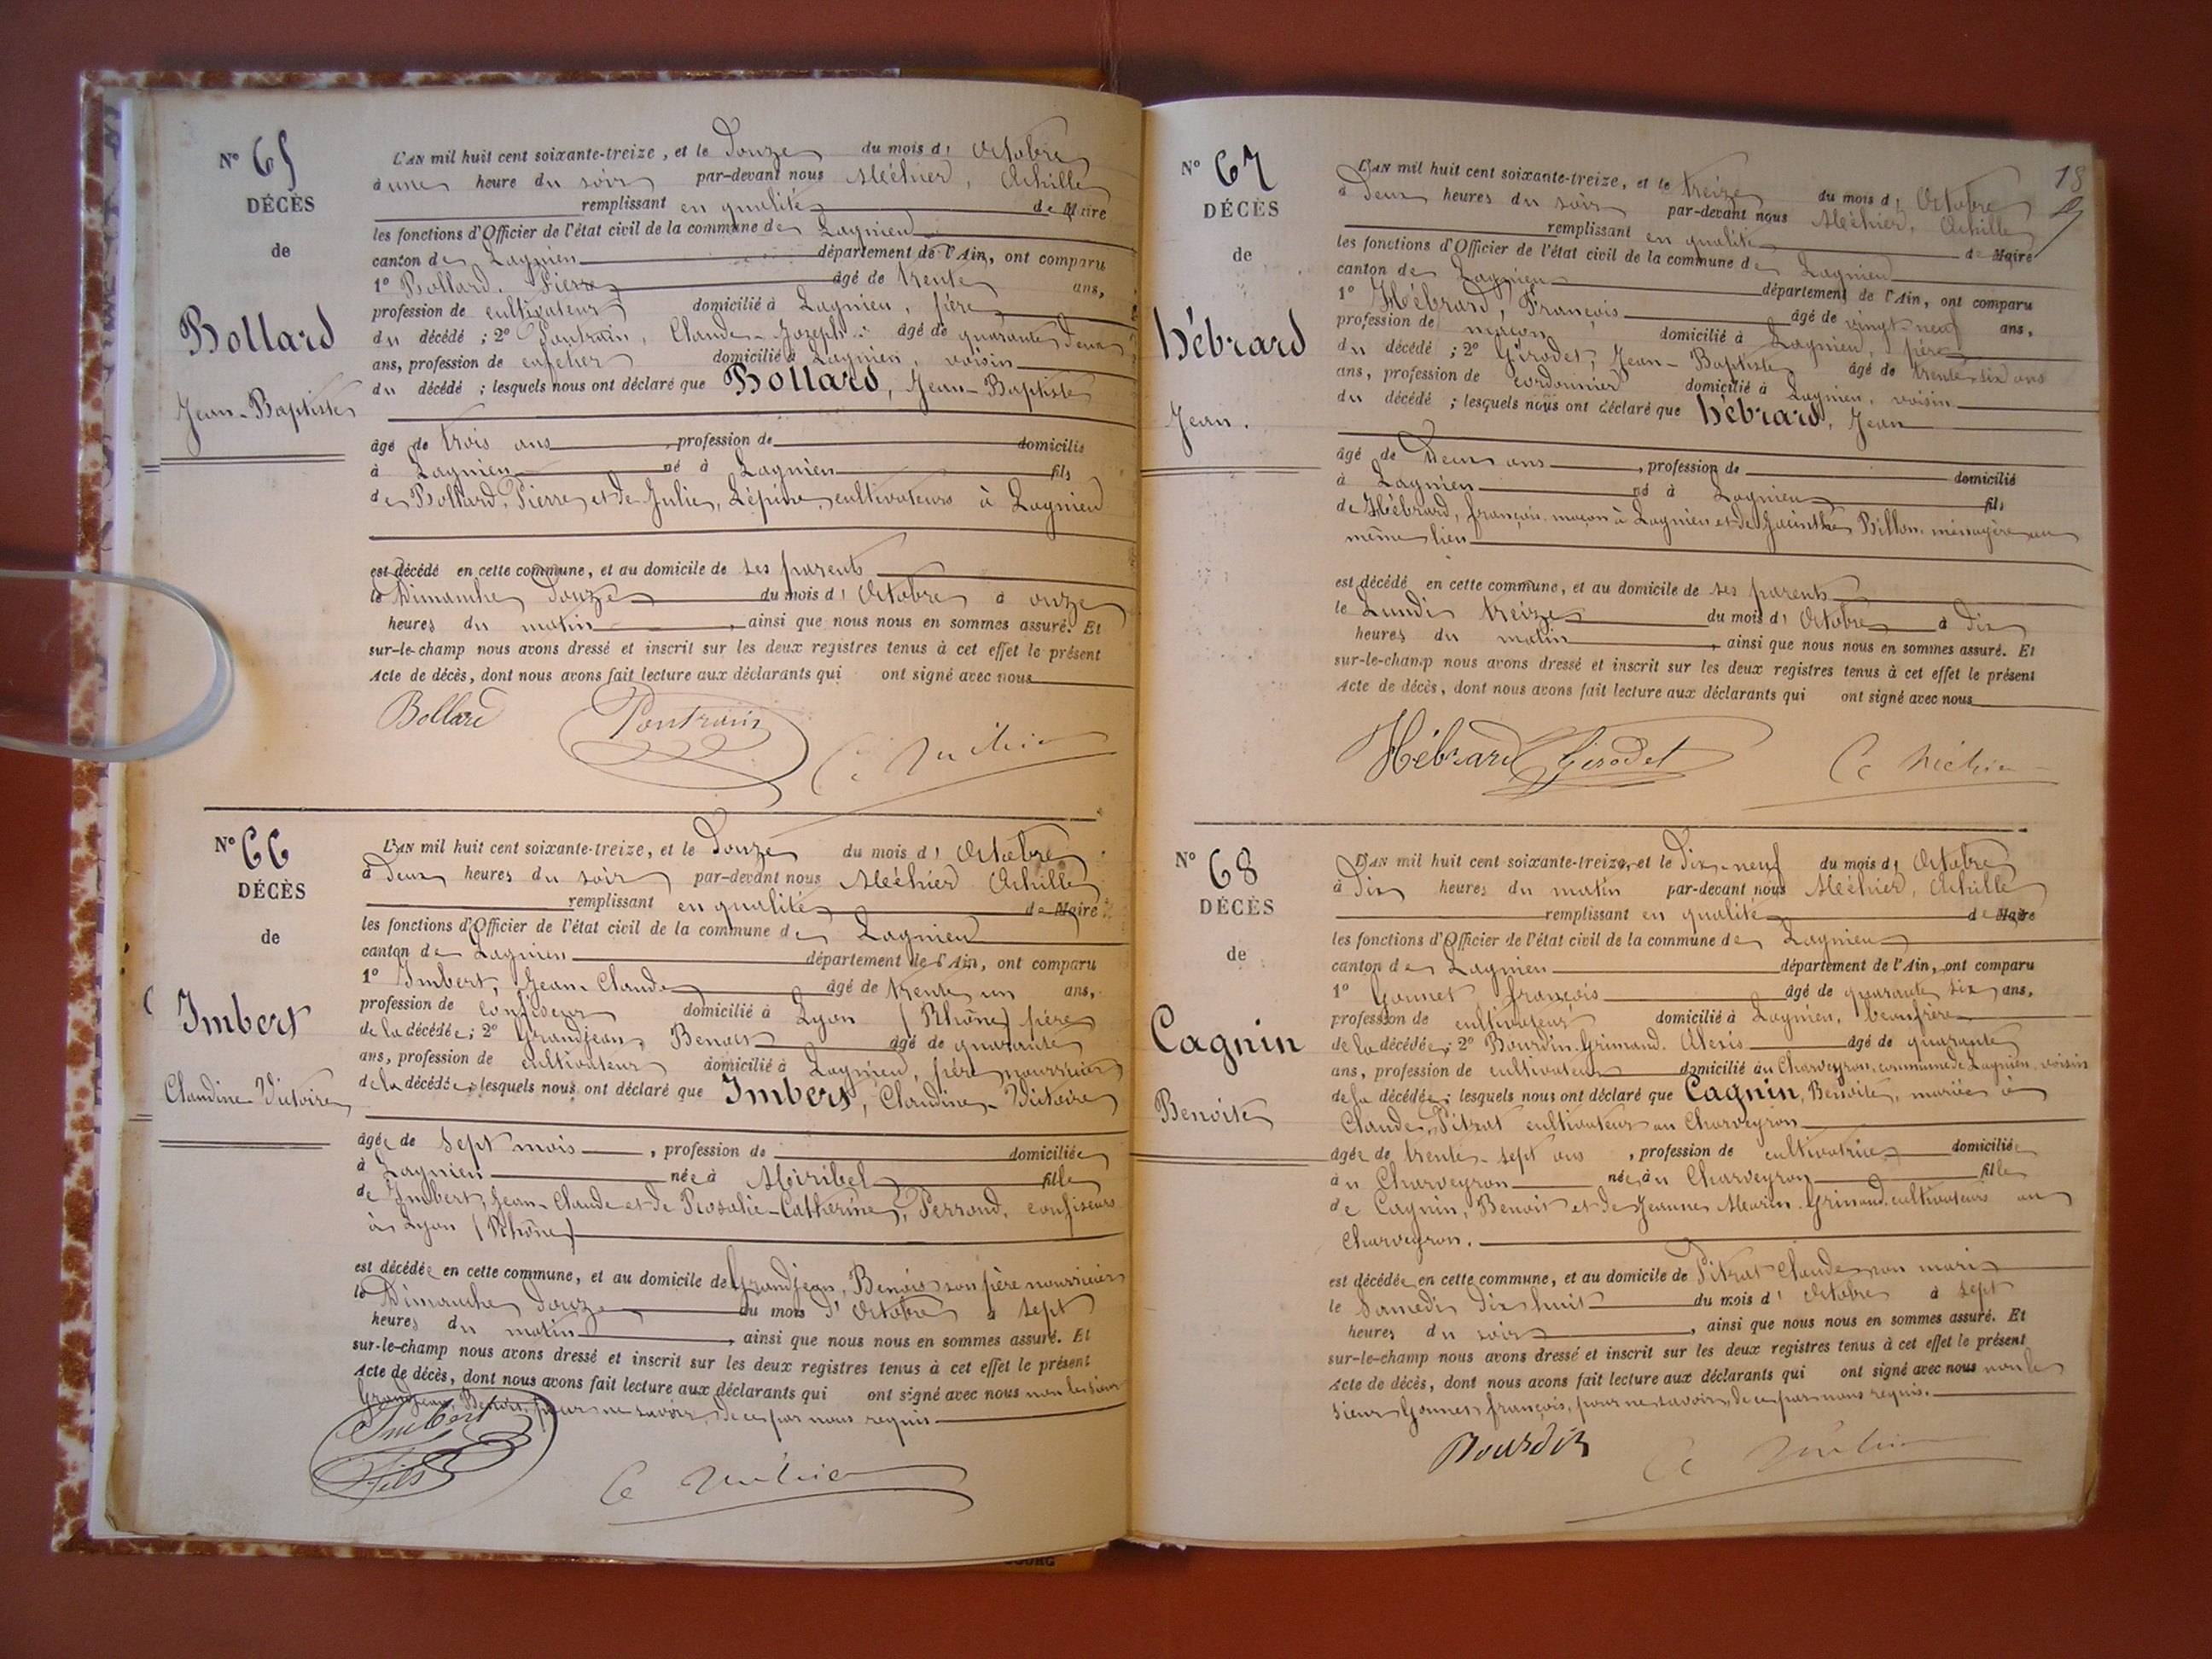 N° 65
DÉCÈS
de
Bollard
Jean-Baptiste
L'AN mil huit cent soixante-treize, et le Douze du mois d' Octobre
à une heure du soir par-devant nous Méhier, Achille
remplissant en qualité de Maire
les fonctions d'Officier de l'état civil de la commune de Lagnieu
canton de Lagnieu département de l'Ain, ont comparu
1° Bollard, Pierre âgé de trente ans,
profession de cultivateur domicilié à Lagnieu, père
du décédé ; 2° Pontrain, Claude-Joseph âgé de quarante deux
ans, profession de cafetier domicilié à Lagnieu, voisin
du décédé ; lesquels nous ont déclaré que Bollard, Jean-Baptiste
âgé de trois ans, profession de domicilié
à Lagnieu né à Lagnieu fils
de Bollard, Pierre et de Julie, Lépine, cultivateurs à Lagnieu
est décédé en cette commune, et au domicile de ses parents
le Dimanche Douze du mois d' Octobre à onze
heures du matin, ainsi que nous nous en sommes assuré. Et
sur-le-champ nous avons dressé et inscrit sur les deux registres tenus à cet effet le présent
Acte de décès, dont nous avons fait lecture aux déclarants qui ont signé avec nous
Bollard Pontrain A Méhier
N° 66
DÉCÈS
de
Imbert
Claudine-Victoire
L'AN mil huit cent soixante-treize, et le Douze du mois d' Octobre
à Deux heures du soir par-devant nous Méhier Achille
remplissant en qualité de Maire
les fonctions d'Officier de l'état civil de la commune de Lagnieu
canton de Lagnieu département de l'Ain, ont comparu
1° Imbert, Jean-Claude âgé de trente un ans,
profession de confiseur domicilié à Lyon (Rhône) père
de la décédée ; 2° Grandjean, Benoit âgé de quarante
ans, profession de cultivateur domicilié à Lagnieu, père nourricier
de la décédée ; lesquels nous ont déclaré que Imbert, Claudine-Victoire
âgée de sept mois, profession de domiciliée
à Lagnieu née à Miribel fille
de Imbert, Jean-Claude et de Rosalie-Catherine, Perrond, confiseurs
à Lyon (Rhône)
est décédée en cette commune, et au domicile de Grandjean, Benoit son père nourricier
le Dimanche douze du mois d' Octobre à sept
heures du matin, ainsi que nous nous en sommes assuré. Et
sur-le-champ nous avons dressé et inscrit sur les deux registres tenus à cet effet le présent
Acte de décès, dont nous avons fait lecture aux déclarants qui ont signé avec nous non le sieur
Grandjean, Benoit, pour ne savoir, de ce par nous requis
Imbert
Fils
A Méhier
N° 67
DÉCÈS
de
Hébrard
Jean.
18
L'AN mil huit cent soixante-treize, et le treize du mois d' Octobre
à Deux heures du soir par-devant nous Méhier, Achille
remplissant en qualité de Maire
les fonctions d'Officier de l'état civil de la commune de Lagnieu
canton de Lagnieu département de l'Ain, ont comparu
1° Hébrard, François âgé de vingt-neuf ans,
profession de maçon domicilié à Lagnieu, père
du décédé ; 2° Girodet, Jean-Baptiste âgé de trente six ans
ans, profession de cordonnier domicilié à Lagnieu, voisin
du décédé ; lesquels nous ont déclaré que Hébrard, Jean
âgé de Deux ans, profession de domicilié
à Lagnieu né à Lagnieu fils
de Hébrard, françois, maçon à Lagnieu et de Jacinthe Billon, ménagère au
même lieu
est décédé en cette commune, et au domicile de ses parents
le Lundi treize du mois d' Octobre à dix
heures du matin, ainsi que nous nous en sommes assuré. Et
sur-le-champ nous avons dressé et inscrit sur les deux registres tenus à cet effet le présent
Acte de décès, dont nous avons fait lecture aux déclarants qui ont signé avec nous
Hébrard Girodet A Méhier
N° 68
DÉCÈS
de
Cagnin
Benoite
L'AN mil huit cent soixante-treize, et le Dix-neuf du mois d' Octobre
à Dix heures du matin par-devant nous Méhier, Achille
remplissant en qualité de Maire
les fonctions d'Officier de l'état civil de la commune de Lagnieu
canton de Lagnieu département de l'Ain, ont comparu
1° Gonnet françois âgé de quarante six ans,
profession de cultivateur domicilié à Lagnieu, beaufrère
de la décédée ; 2° Bourdin-Grimaud, Alexis âgé de quarante
ans, profession de cultivateur domicilié au Charveyron, commune de Lagnieu, voisin
de la décédée ; lesquels nous ont déclaré que Cagnin, Benoite, mariée à
Claude, Pitrat cultivateur au Charveyron
âgée de trente-sept ans, profession de cultivatrice domiciliée
au Charveyron née au Charveyron fille
de Cagnin, Benoit et de Jeanne Maurin-Grimaud, cultivateurs au
Charveyron.
est décédée en cette commune, et au domicile de Pitrat Claude son mari
le Samedi Dix huit du mois d' Octobre à sept
heures du soir, ainsi que nous nous en sommes assuré. Et
sur-le-champ nous avons dressé et inscrit sur les deux registres tenus à cet effet le présent
Acte de décès, dont nous avons fait lecture aux déclarants qui ont signé avec nous non le
sieur Gonnet françois, pour ne savoir, de ce par nous requis.
Bourdin A Méhier